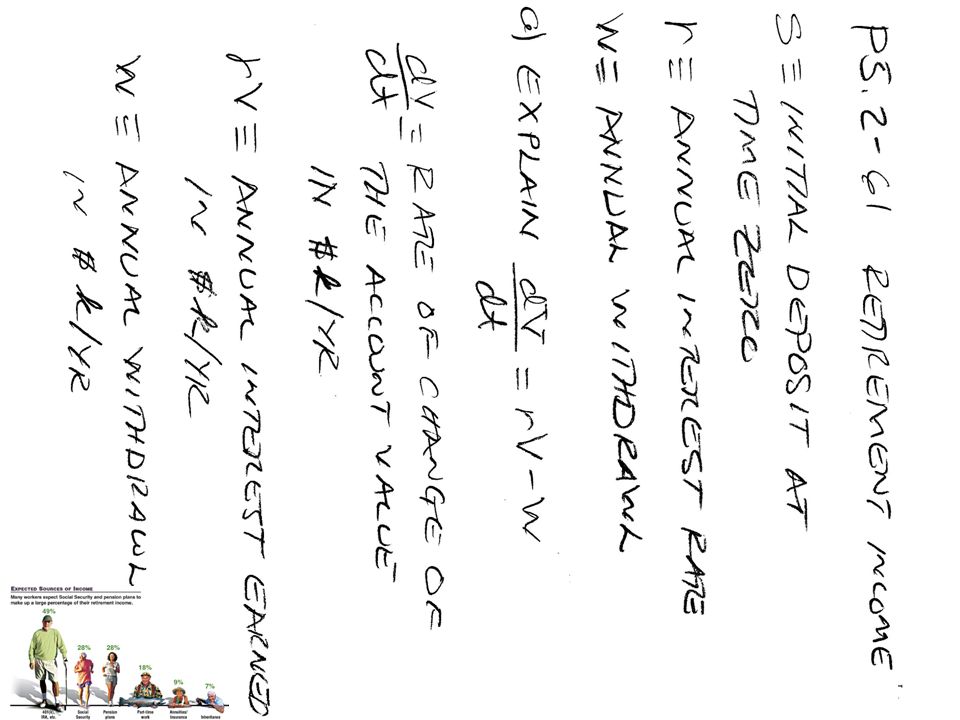 PS. 2-61 RETIREMENT INCOME
S ≡ INITIAL DEPOSIT AT
TIME ZERO
r ≡ ANNUAL INTEREST RATE
W ≡ ANNUAL WITHDRAWL
a) EXPLAIN dV/dt = rV - W
dV/dt ≡ RATE OF CHANGE OF
THE ACCOUNT VALUE
IN $K/YR
rV ≡ ANNUAL INTEREST EARNED
IN $K/YR
W ≡ ANNUAL WITHDRAWL
IN $K/YR
EXPECTED SOURCES OF INCOME
Many workers expect Social Security and pension plans to
make up a large percentage of their retirement income.
49%
28% 28%
18%
9%
7%
401(k), Social Pension Part-time Annuities/ Inheritance
IRA, etc. Security plans work Insurance